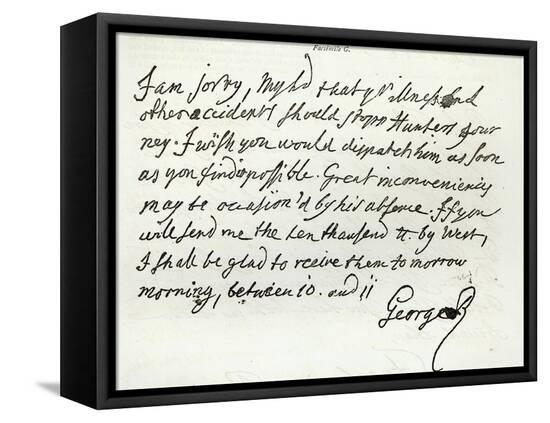 Facsimile G.
I am sorry, My Ld that yr illness and
other accidents should stopp Hunters jour
ney. I wish you would dispatch him as soon
as you find it possible. Great inconveniency
may be occasion'd by his absence. If you
will send me the ten thausend ll. by West,
I shall be glad to receive them to morrow
morning, between 10. and 11
George R